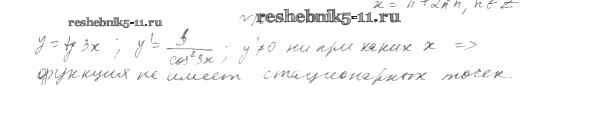 x = π + 2πn, n ∈ Z
reshebnik5-11.ru
reshebnik5-11.ru
y = tg 3x ; y' = 3/cos²3x ; y' ≠ 0 ни при каких x =>
функция не имеет стационарных точек.